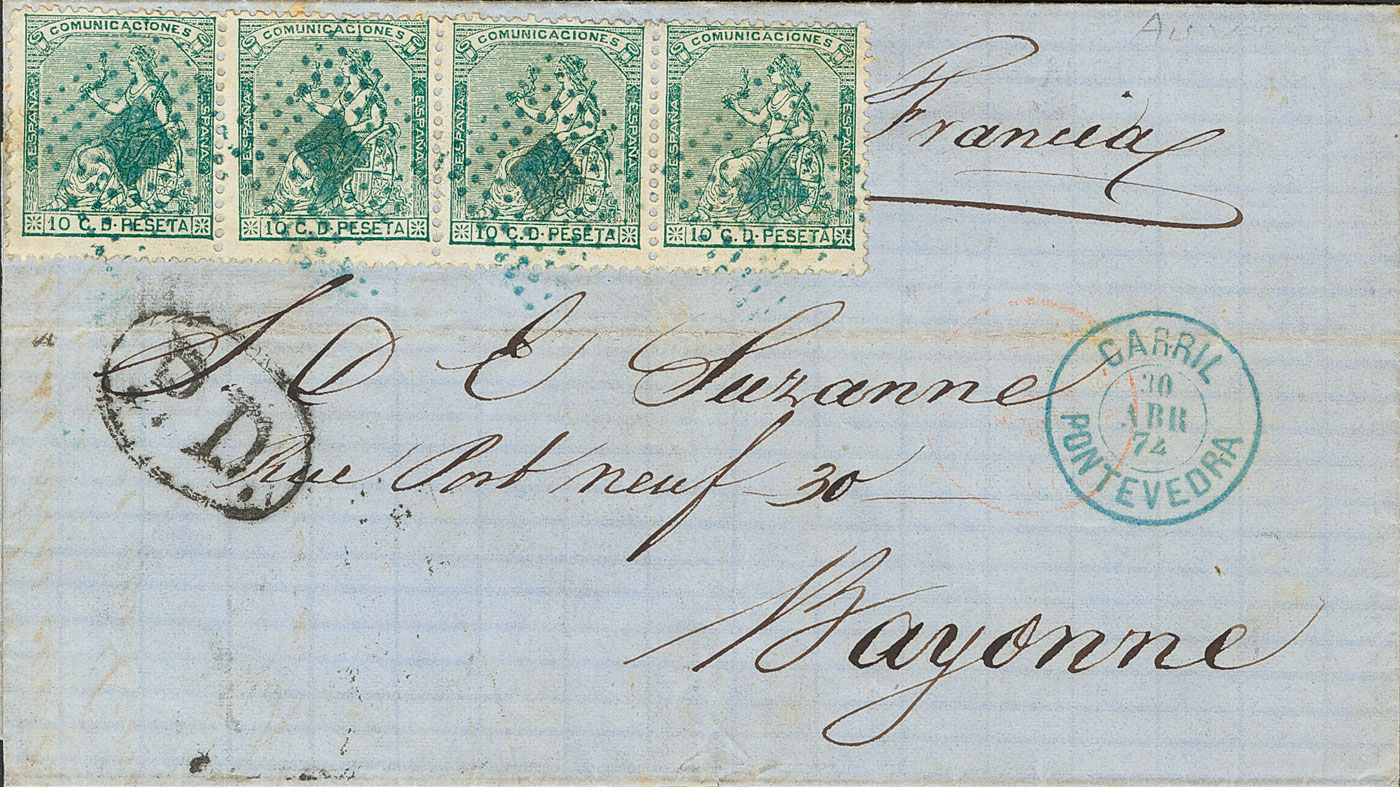 COMUNICACIONES COMUNICACIONES COMUNICACIONES COMUNICACIONES
ESPAÑA ESPAÑA ESPAÑA ESPAÑA ESPAÑA ESPAÑA ESPAÑA ESPAÑA
10 C. D. PESETA 10 C. D. PESETA 10 C. D. PESETA 10 C. D. PESETA
Francia
P. D.
S. O E Suzanne
Rue Port neuf 30
Bayonne
CARRIL
30
ABR
74
PONTEVEDRA